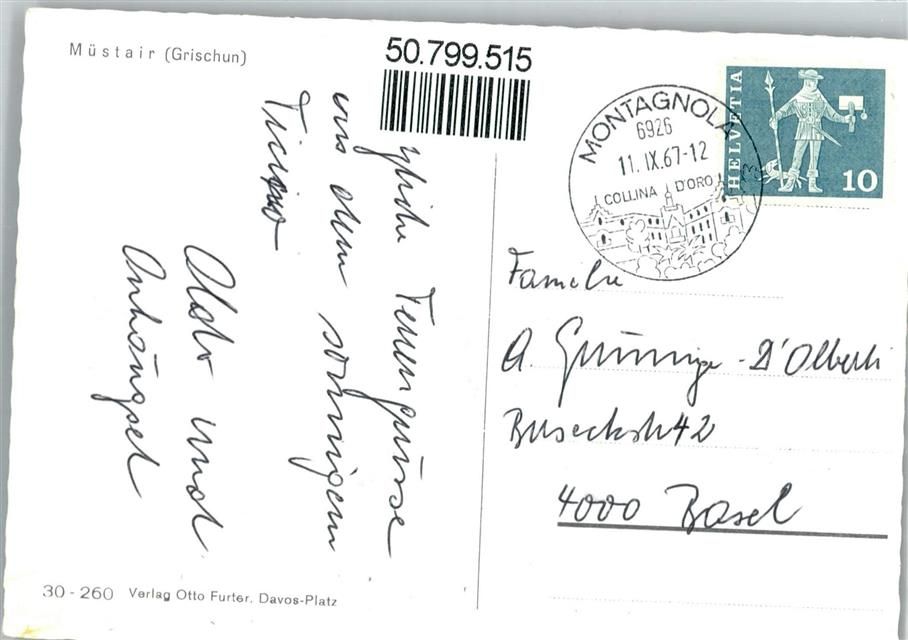 Müstair (Grischun)
50.799.515
Feriengrüsse
aus dem sonnigem
Ticino
Aldo und
Anhängsel
30-260 Verlag Otto Furter, Davos-Platz
MONTAGNOLA
6926
11.IX.67-12
COLLINA D'ORO
HELVETIA
10
Familie
A. D'Alberti
42
4000 Basel